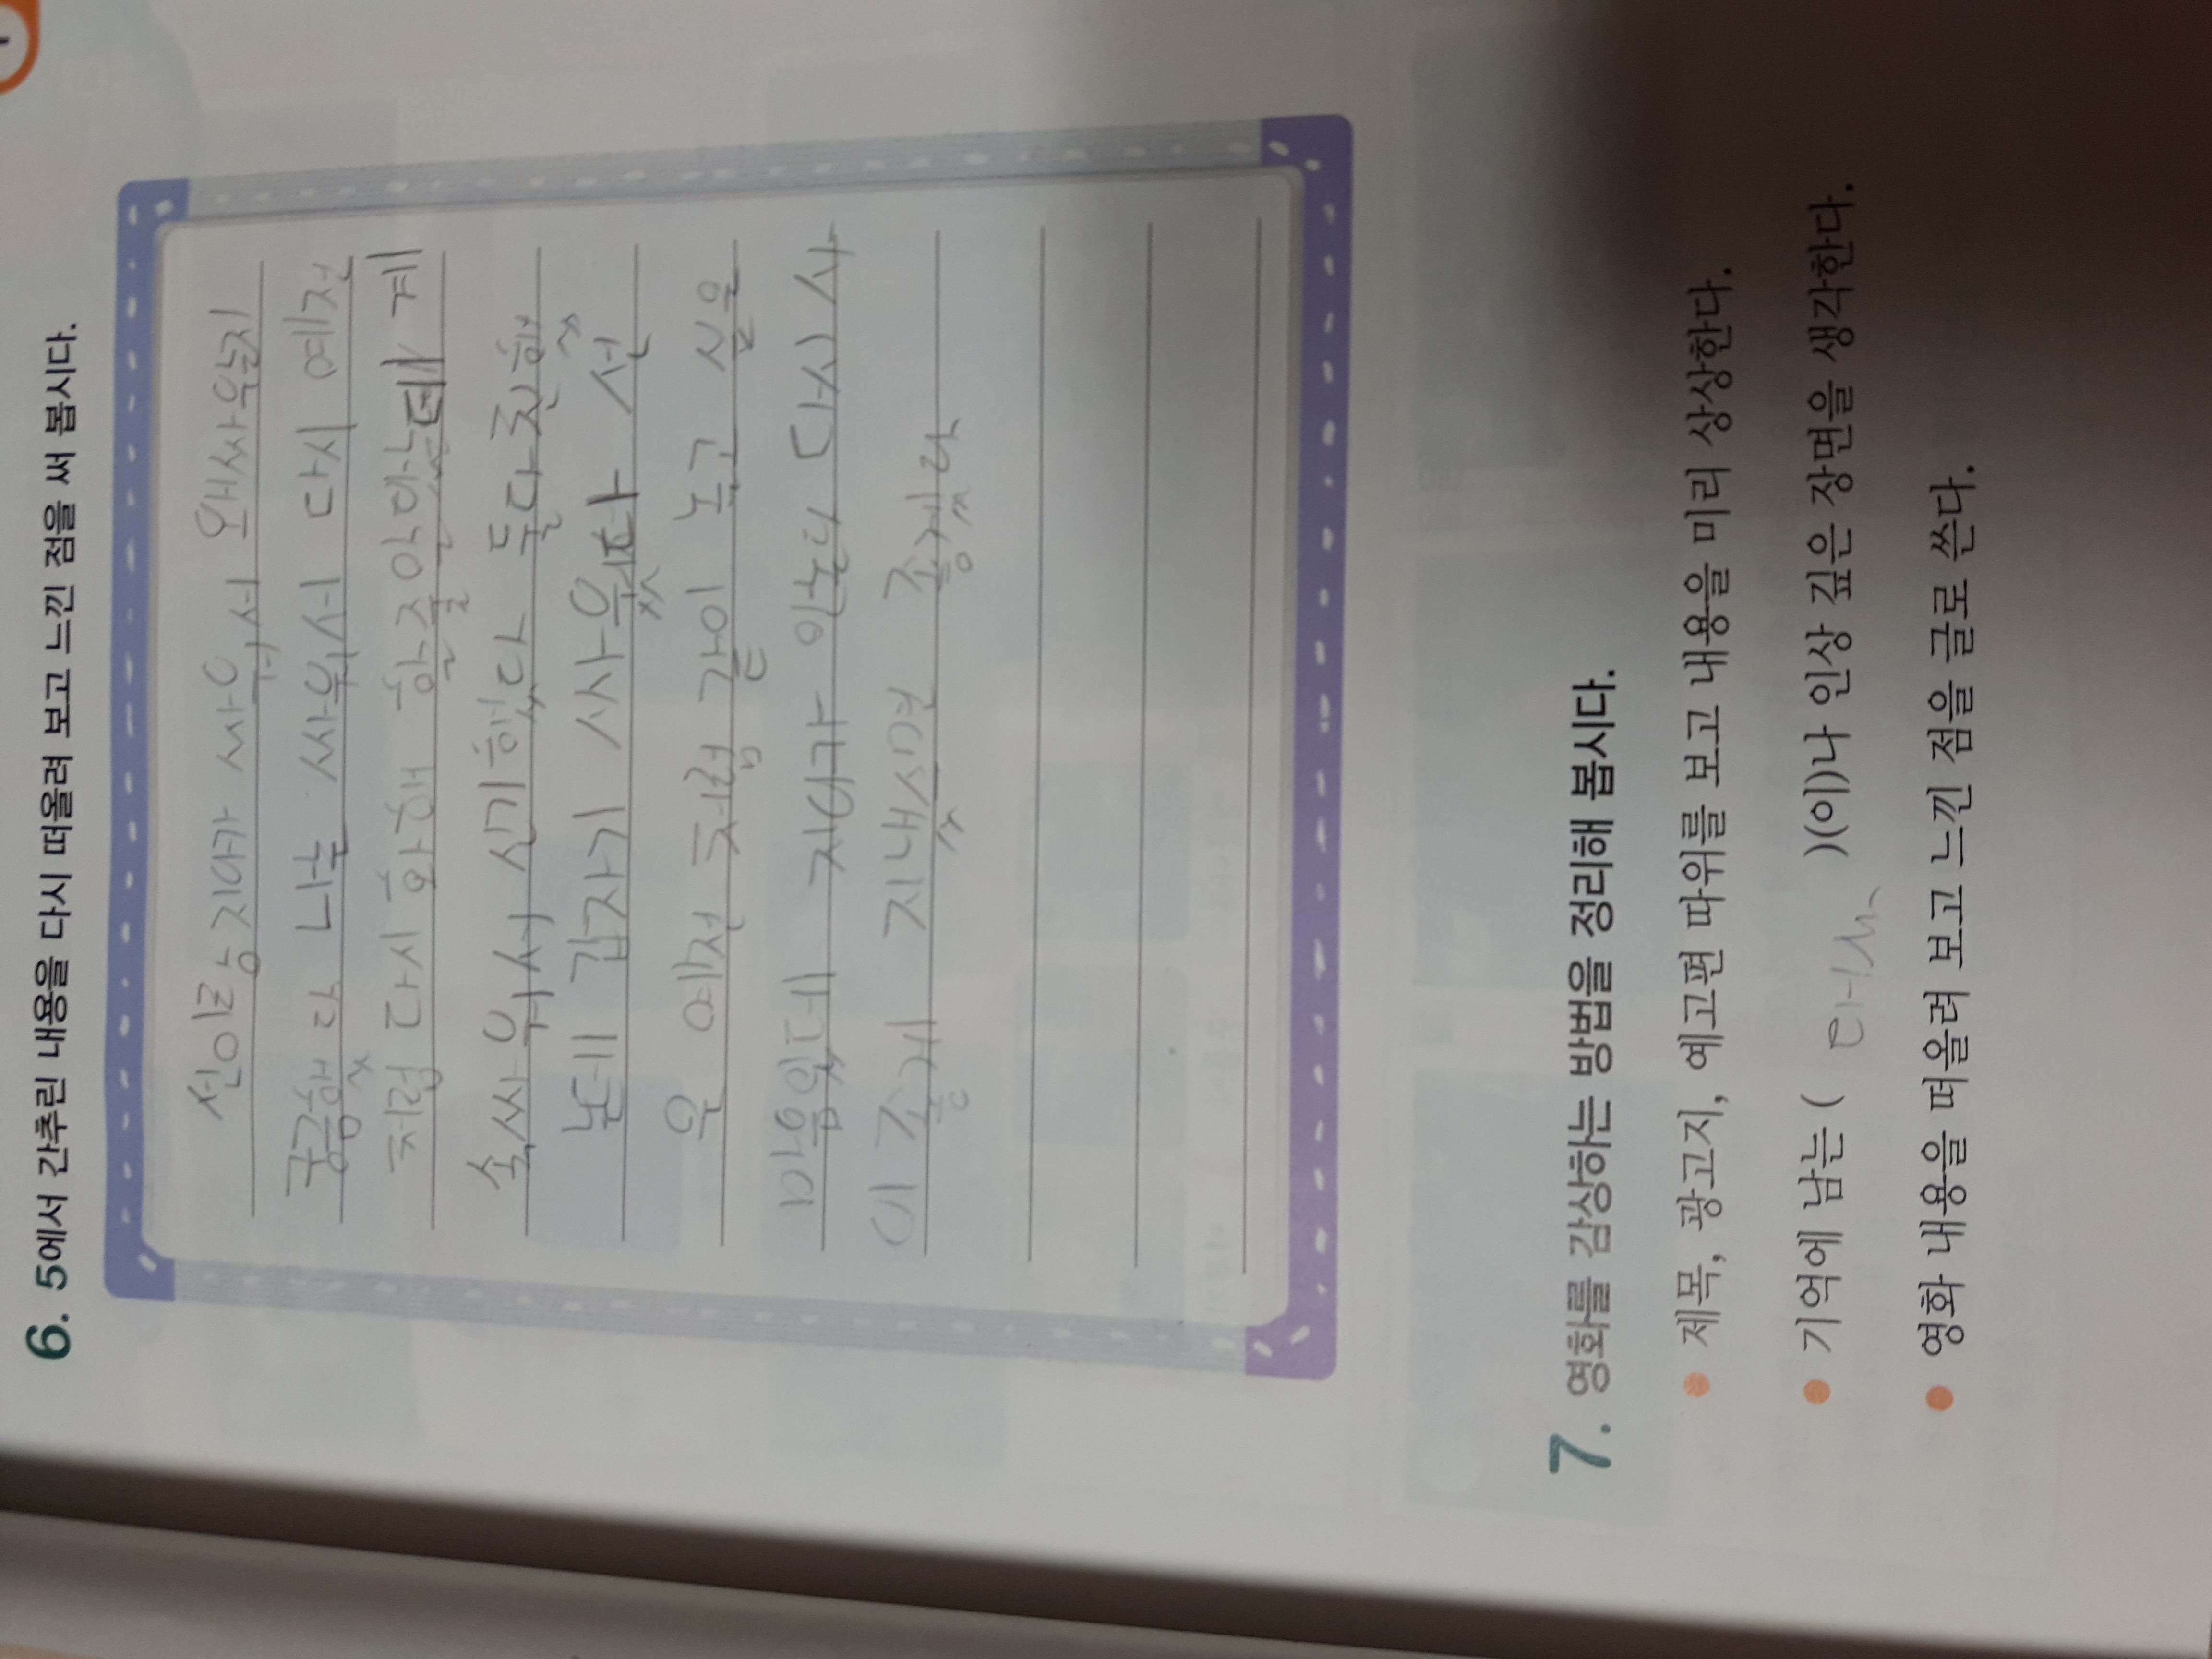 6. 5에서 간추린 내용을 다시 떠올려 보고 느낀 점을 써 봅시다.
선이랑 지아가 싸워서 왜 싸운지
궁해다 나는 싸워서 다시 예전
처럼 다시 화해 할 지 아라는데 계
속 싸워서 신기했다 둘다 친해
는데 갑자기 싸우다 선
은 예전 처럼 같이 놀고 싶은
마음인데 지아가 안논다 다시 사
이 좋게 지내스면 좋게다
7. 영화를 감상하는 방법을 정리해 봅시다.
• 제목, 광고지, 예고편 따위를 보고 내용을 미리 상상한다.
• 기억에 남는 ( 대사 )(이)나 인상 깊은 장면을 생각한다.
• 영화 내용을 떠올려 보고 느낀 점을 글로 쓴다.